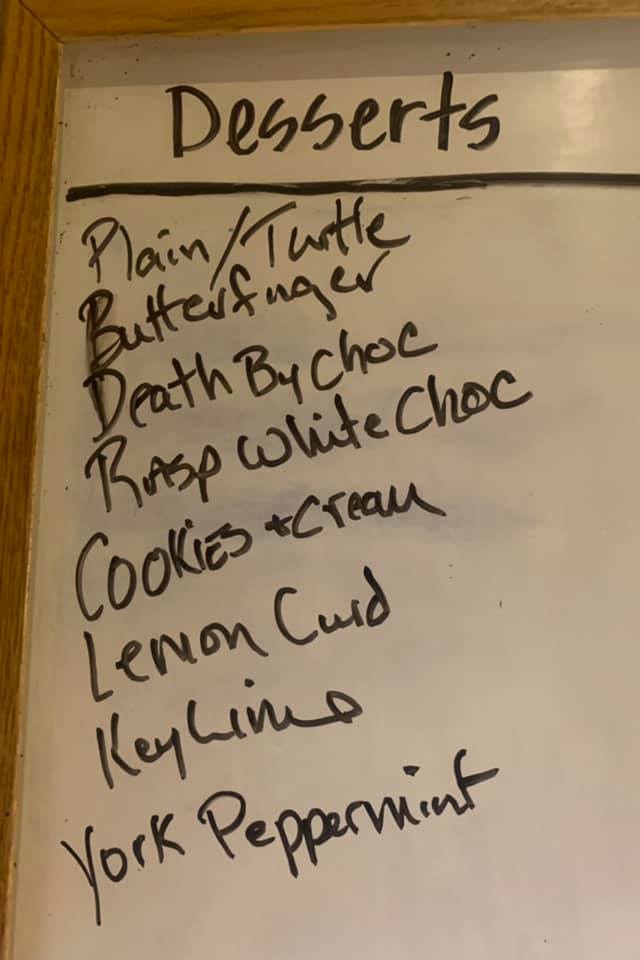 Desserts
Plain/Turtle
Butterfinger
Death By Choc
Rasp White Choc
Cookies + Cream
Lemon Curd
Key Lime
York Peppermint